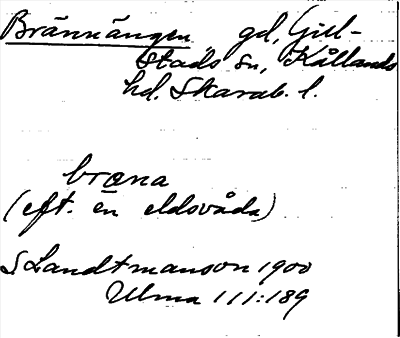 Brännängen, gd, Gill-
stads sn, Kållands
hd. Skarab. l.
bræna
(eft. en eldsvåda)
S Landtmanson 1900
Ulma 111:189